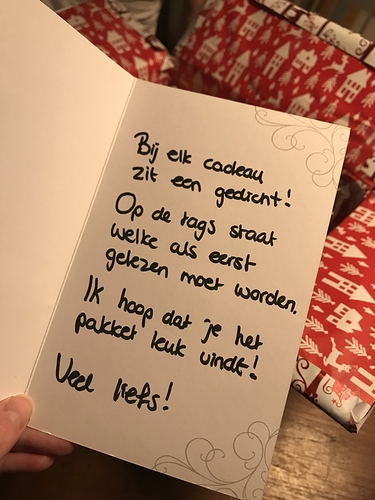 Bij elk cadeau
zit een gedicht!
Op de tags staat
welke als eerst
gelezen moet worden.
Ik hoop dat je het
pakket leuk vindt!
Veel liefs!